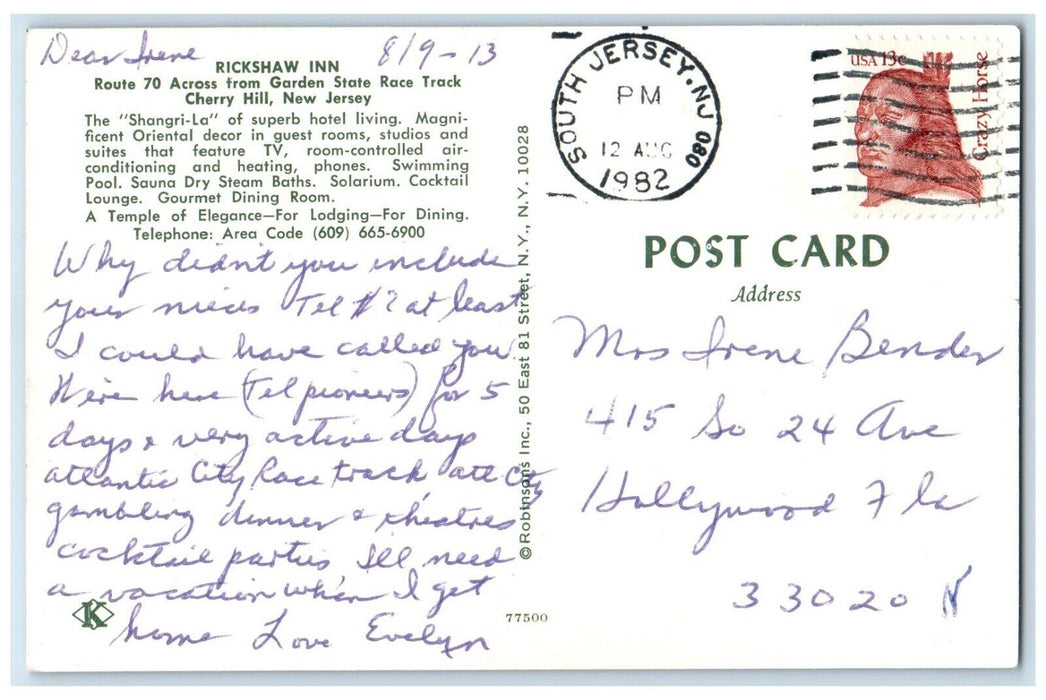 Dear Irene 8/9-13
RICKSHAW INN
Route 70 Across from Garden State Race Track
Cherry Hill, New Jersey
The "Shangri-La" of superb hotel living. Magni-
ficent Oriental decor in guest rooms, studios and
suites that feature TV, room-controlled air-
conditioning and heating, phones. Swimming
Pool. Sauna Dry Steam Baths. Solarium. Cocktail
Lounge. Gourmet Dining Room.
A Temple of Elegance—For Lodging—For Dining.
Telephone: Area Code (609) 665-6900
Why didn't you include
your nieces Tel #? at least
I could have called you
We're here (Tel pioneers) for 5
days & very active days
atlantic City Race track atl City
gambling dinner & theatres
cocktail parties I'll need
a vacation when I get
home Love Evelyn
K
77500
© Robinsons Inc., 50 East 81 Street, N.Y., N.Y. 10028
SOUTH JERSEY, NJ 080
PM
12 AUG
1982
USA 13c
Crazy Horse
POST CARD
Address
Mrs Irene Bender
415 So 24 Ave
Hollywood Fla
33020